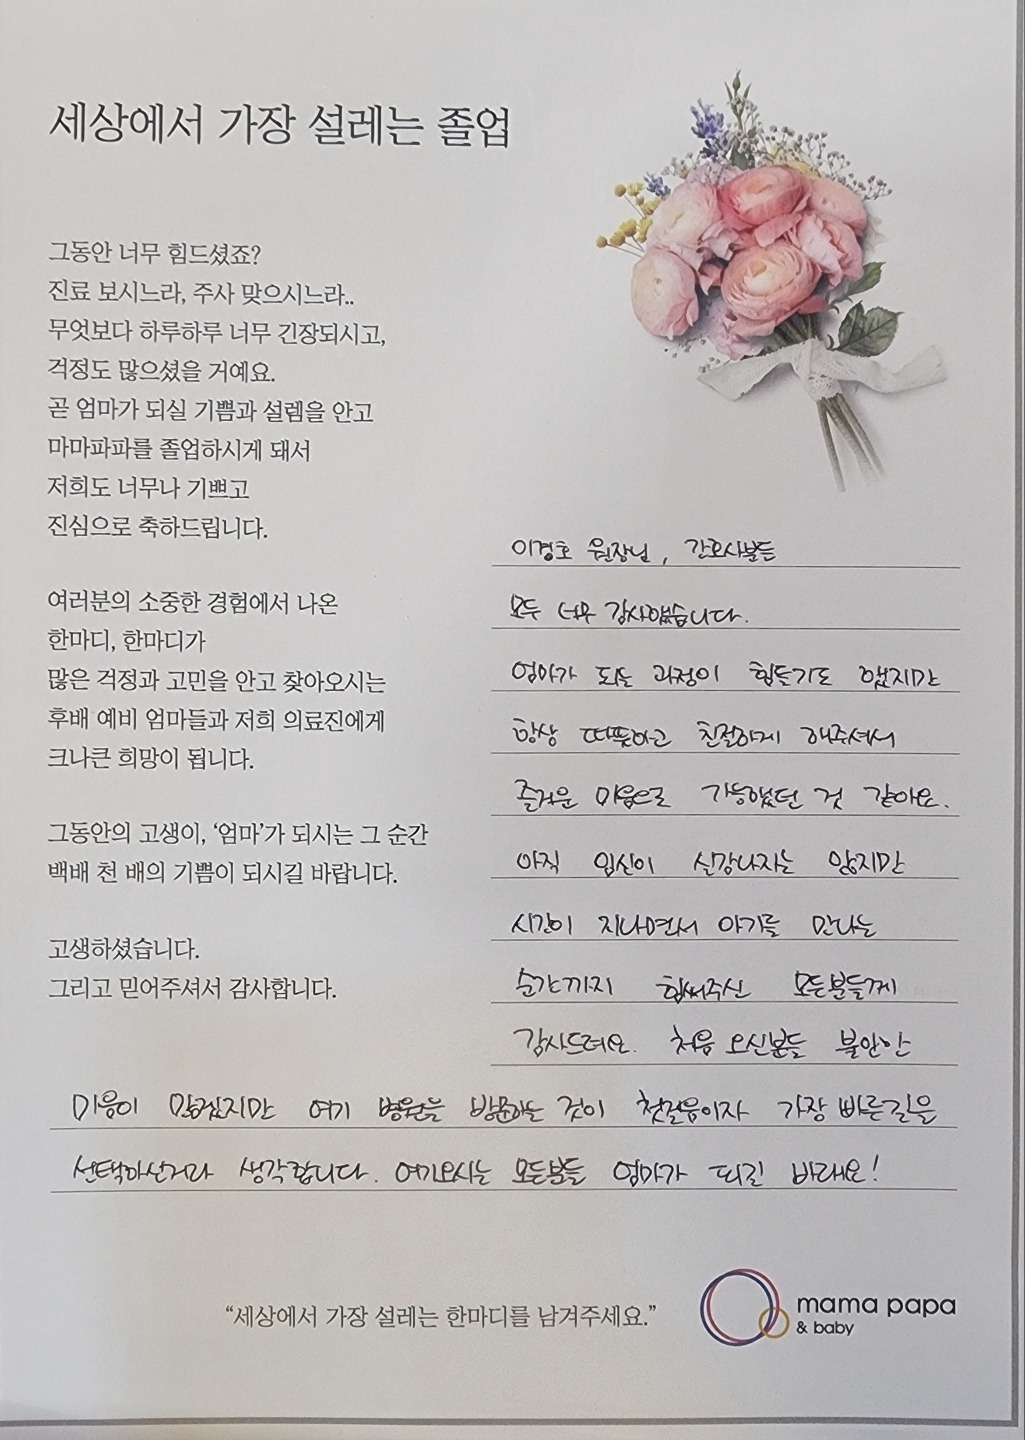 세상에서 가장 설레는 졸업
그동안 너무 힘드셨죠?
진료 보시느라, 주사 맞으시느라..
무엇보다 하루하루 너무 긴장되시고,
걱정도 많으셨을 거예요.
곧 엄마가 되실 기쁨과 설렘을 안고
마마파파를 졸업하시게 돼서
저희도 너무나 기쁘고
진심으로 축하드립니다.
여러분의 소중한 경험에서 나온
한마디, 한마디가
많은 걱정과 고민을 안고 찾아오시는
후배 예비 엄마들과 저희 의료진에게
크나큰 희망이 됩니다.
그동안의 고생이, ‘엄마’가 되시는 그 순간
백배 천 배의 기쁨이 되시길 바랍니다.
고생하셨습니다.
그리고 믿어주셔서 감사합니다.
이경호 원장님, 간호사분들
모두 너무 감사했습니다.
엄마가 되는 과정이 힘들기도 했지만
항상 따뜻하고 친절하게 해주셔서
즐거운 마음으로 가능했던 것 같아요.
아직 임신이 실감나지는 않지만
시간이 지나면서 아기를 만나는
순간까지 힘써주신 모든분들께
감사드려요. 처음 오신분들 불안한
마음이 많겠지만 여기 병원을 방문하는 것이 첫걸음이자 가장 빠른길을
선택하신거라 생각합니다. 여기오시는 모든분들 엄마가 되길 바래요!
“세상에서 가장 설레는 한마디를 남겨주세요.”
mama papa
& baby